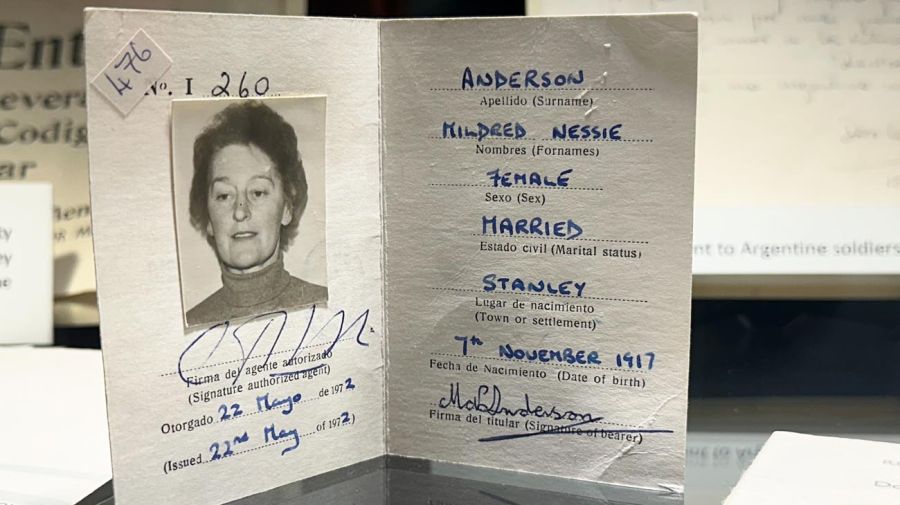 476
No. I 260
Firma del agente autorizado
(Signature authorized agent)
Otorgado 22 Mayo de 1972
(Issued 22nd May of 1972)
ANDERSON
Apellido (Surname)
MILDRED NESSIE
Nombres (Fornames)
FEMALE
Sexo (Sex)
MARRIED
Estado civil (Marital status)
STANLEY
Lugar de nacimiento
(Town or settlement)
7th NOVEMBER 1917
Fecha de Nacimiento (Date of birth)
Anderson
Firma del titular (Signature of bearer)
Ent
Codig
ar
to Argentine soldiers